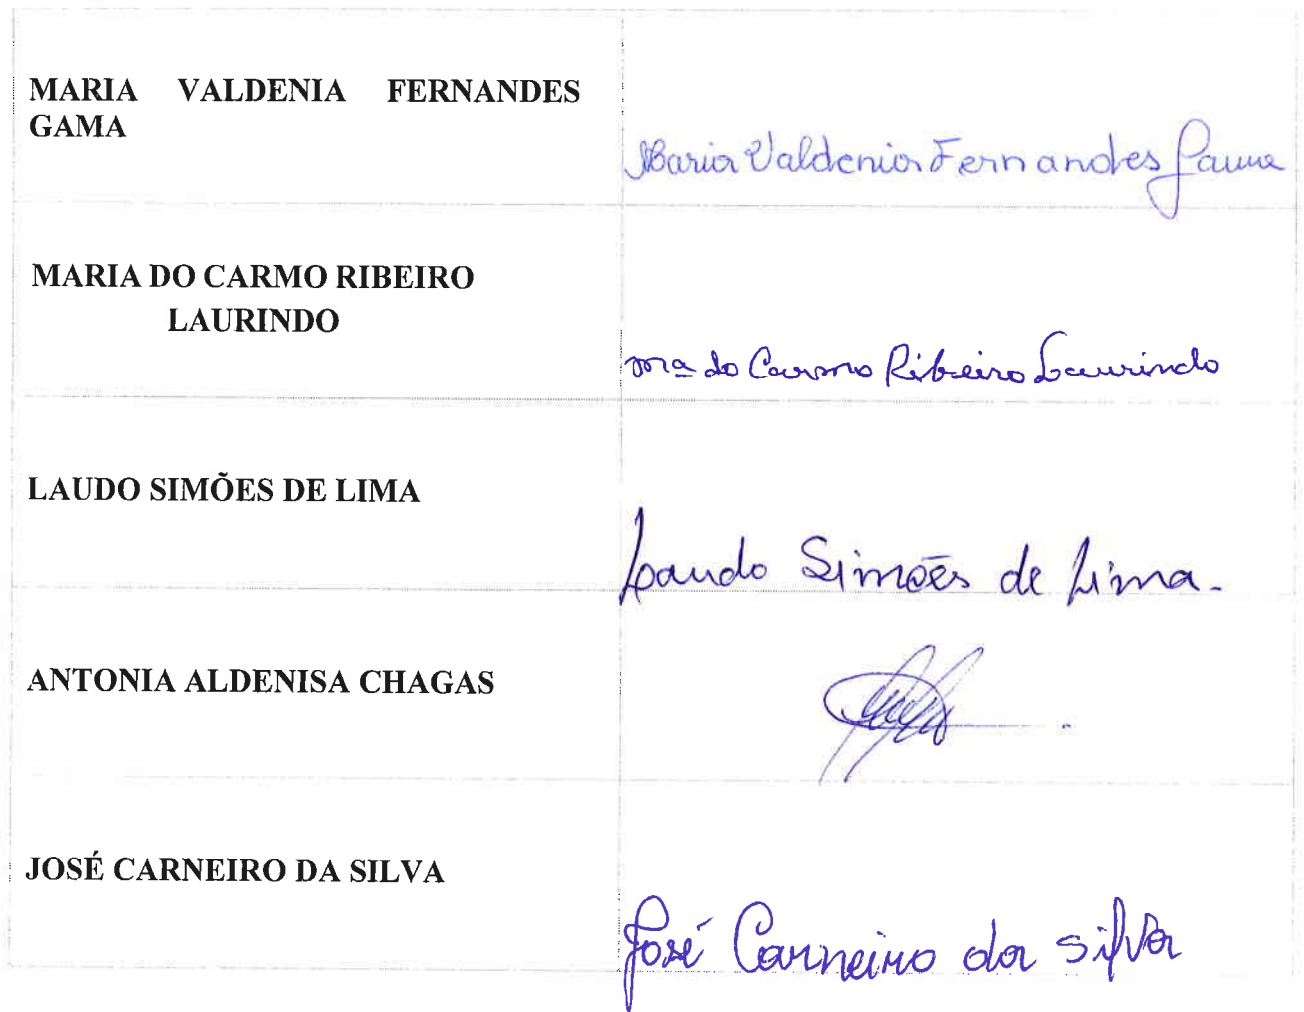 MARIA VALDENIA FERNANDES
GAMA
Maria Valdenia Fernandes Gama
MARIA DO CARMO RIBEIRO
LAURINDO
mª do Carmo Ribeiro Laurindo
LAUDO SIMÕES DE LIMA
Laudo Simões de Lima.
ANTONIA ALDENISA CHAGAS
JOSÉ CARNEIRO DA SILVA
José Carneiro da Silva